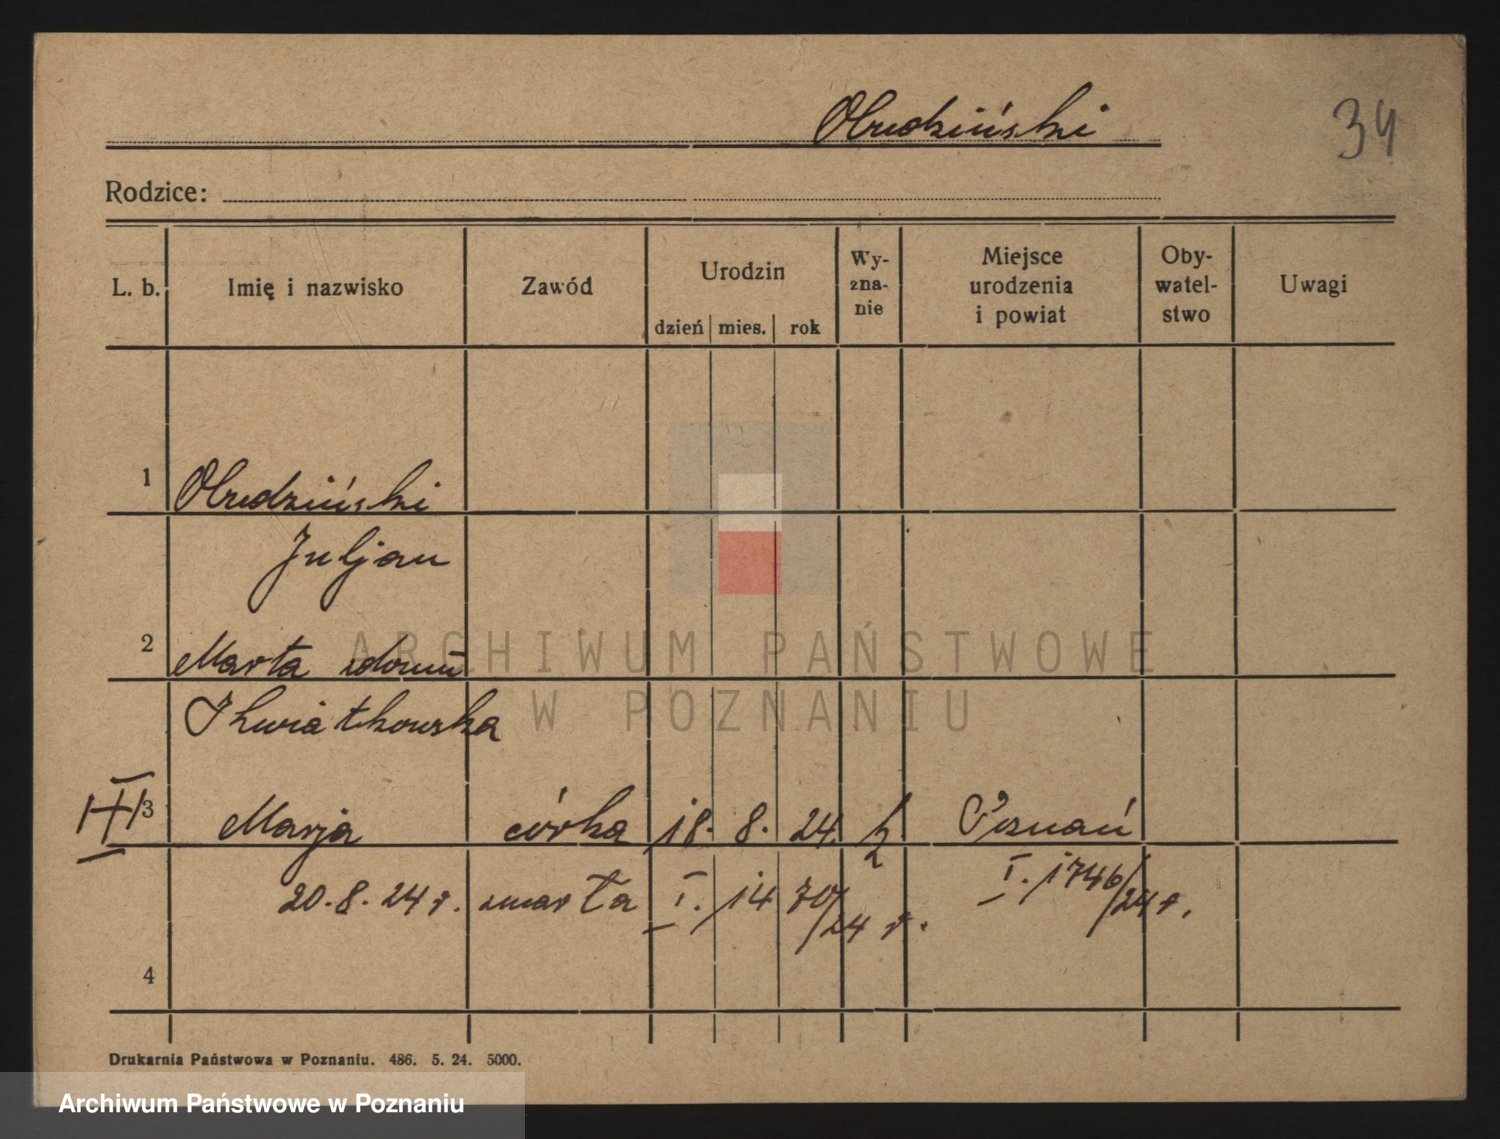 Obudziński
34
Rodzice:
L. b.
Imię i nazwisko
Zawód
Urodzin
dzień mies. rok
Wy-
zna-
nie
Miejsce
urodzenia
i powiat
Oby-
watel-
stwo
Uwagi
1 Obudziński
Juljan
2 Marta zdomu
Kwiatkowska
3 Marja córka 18. 8. 24. k Poznań
20. 8. 24 r. zmarła I. / 1470/24 r. I. / 1746/24 r.
4
Drukarnia Państwowa w Poznaniu. 486. 5. 24. 5000.
ARCHIWUM PAŃSTWOWE
W POZNANIU
Archiwum Państwowe w Poznaniu